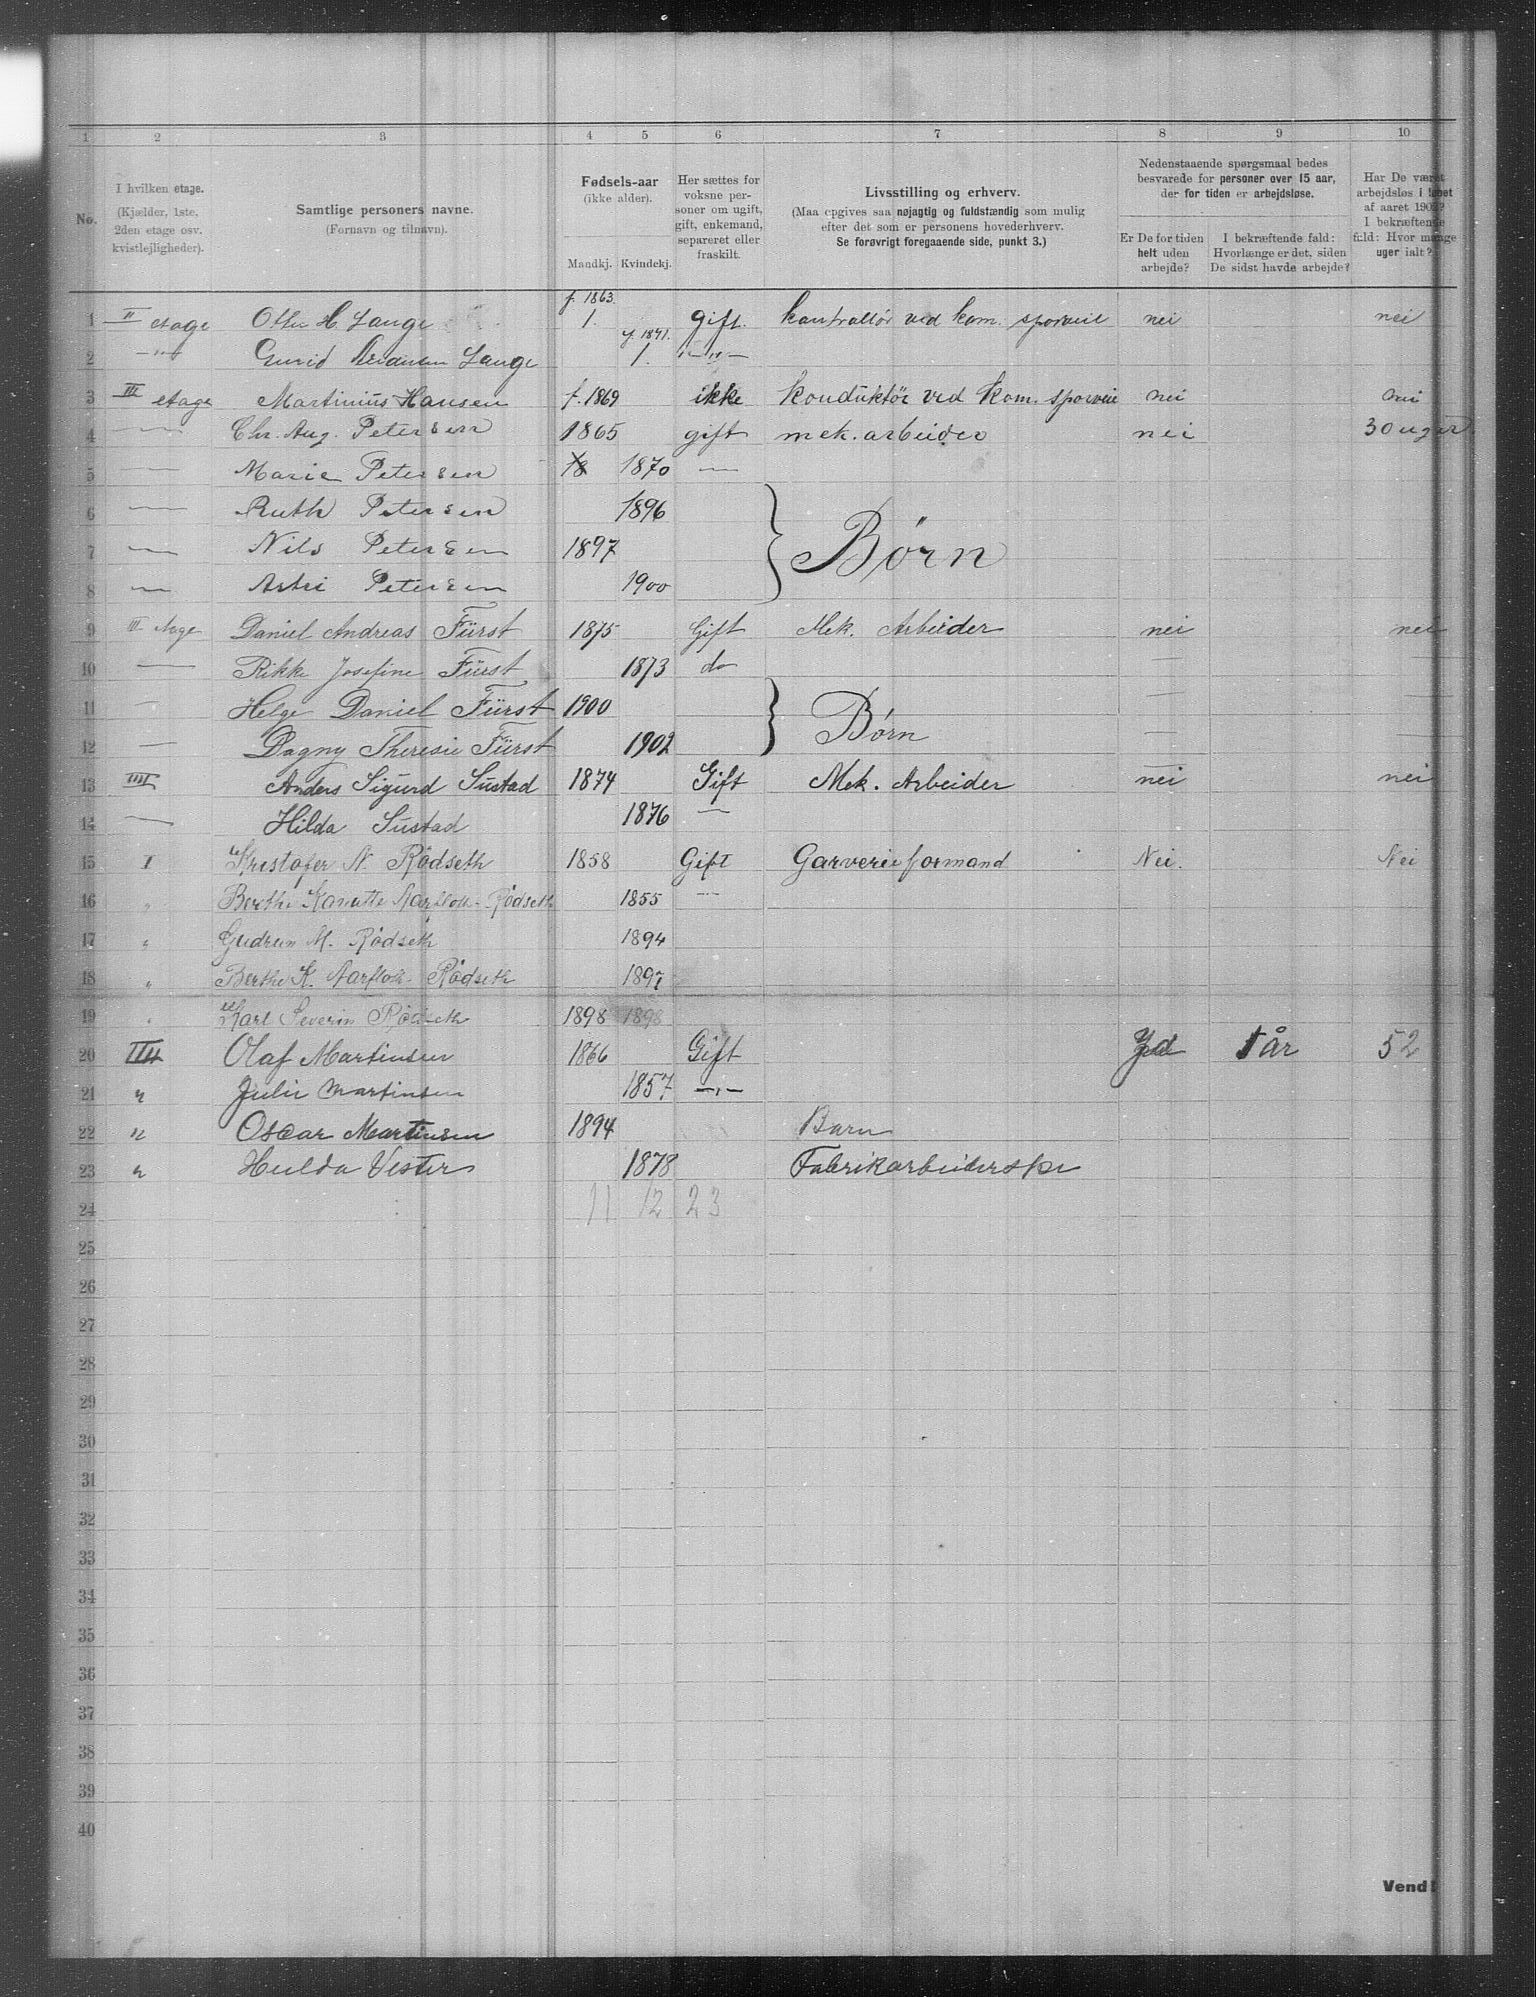 1 2 3 4 5 6 7 8 9 10
No.
I hvilken etage.
(Kjælder, 1ste,
2den etage osv.
kvistlejligheder).
Samtlige personers navne.
(Fornavn og tilnavn).
Fødsels-aar
(ikke alder).
Mandkj. Kvindekj.
Her sættes for
voksne per-
soner om ugift,
gift, enkemand,
separeret eller
fraskilt.
Livsstilling og erhverv.
(Maa opgives saa nøjagtig og fuldstændig som mulig
efter det som er personens hovederhverv.
Se forøvrigt foregaaende side, punkt 3.)
Nedenstaaende spørgsmaal bedes
besvarede for personer over 15 aar,
der for tiden er arbejdsløse.
Er De for tiden
helt uden
arbejde?
I bekræftende fald:
Hvorlænge er det, siden
De sidst havde arbejde?
Har De været
arbejdsløs i løbet
af aaret 1902?
I bekræftende
fald: Hvor mange
uger ialt?
1 II etage Otto H. Lange f. 1863. 1. gift. kontrollør ved kom. sporveie nei nei
2 —"— Gurid Lange f. 1871. 1. —"—
3 III etage Martinius Hansen f. 1869 ikke Konduktör ved Kom. sporveie nei nei
4 — Chr. Aug. Petersen 1865 gift mek. arbeider nei 30 uger
5 — Marie Petersen 18 1870 —
6 — Ruth Petersen 1896
7 — Nils Petersen 1897 } Børn
8 — Astri Petersen 1900
9 III etage Daniel Andreas Fürst 1875 Gift Mek. Arbeider nei nei
10 — Rikke Josefine Fürst 1873 do — —
11 — Helge Daniel Fürst 1900 } Børn — —
12 — Dagny Theresie Fürst 1902 — —
13 IIII Anders Sigurd Sustad 1874 Gift Mek. Arbeider nei nei
14 — Hilda Sustad 1876 —
15 I Kristofer N. Rödseth 1858 Gift Garverieformand Nei. Nei
16 " Berthe Aarflok - Rödseth 1855 —"—
17 " Gudrun M. Rödseth 1894
18 " Berthe K. Aarflok - Rödseth 1897
19 " Karl Severin Rödseth 1898 1898
20 IIII Olaf Martinsen 1866 Gift 1 år 52
21 " Julie Martinsen 1857 —"—
22 " Oscar Martinsen 1894 Barn
23 " Hulda Vister 1878 Fabrikarbeiderske
24 11 12 23
25
26
27
28
29
30
31
32
33
34
35
36
37
38
39
40
Vend!